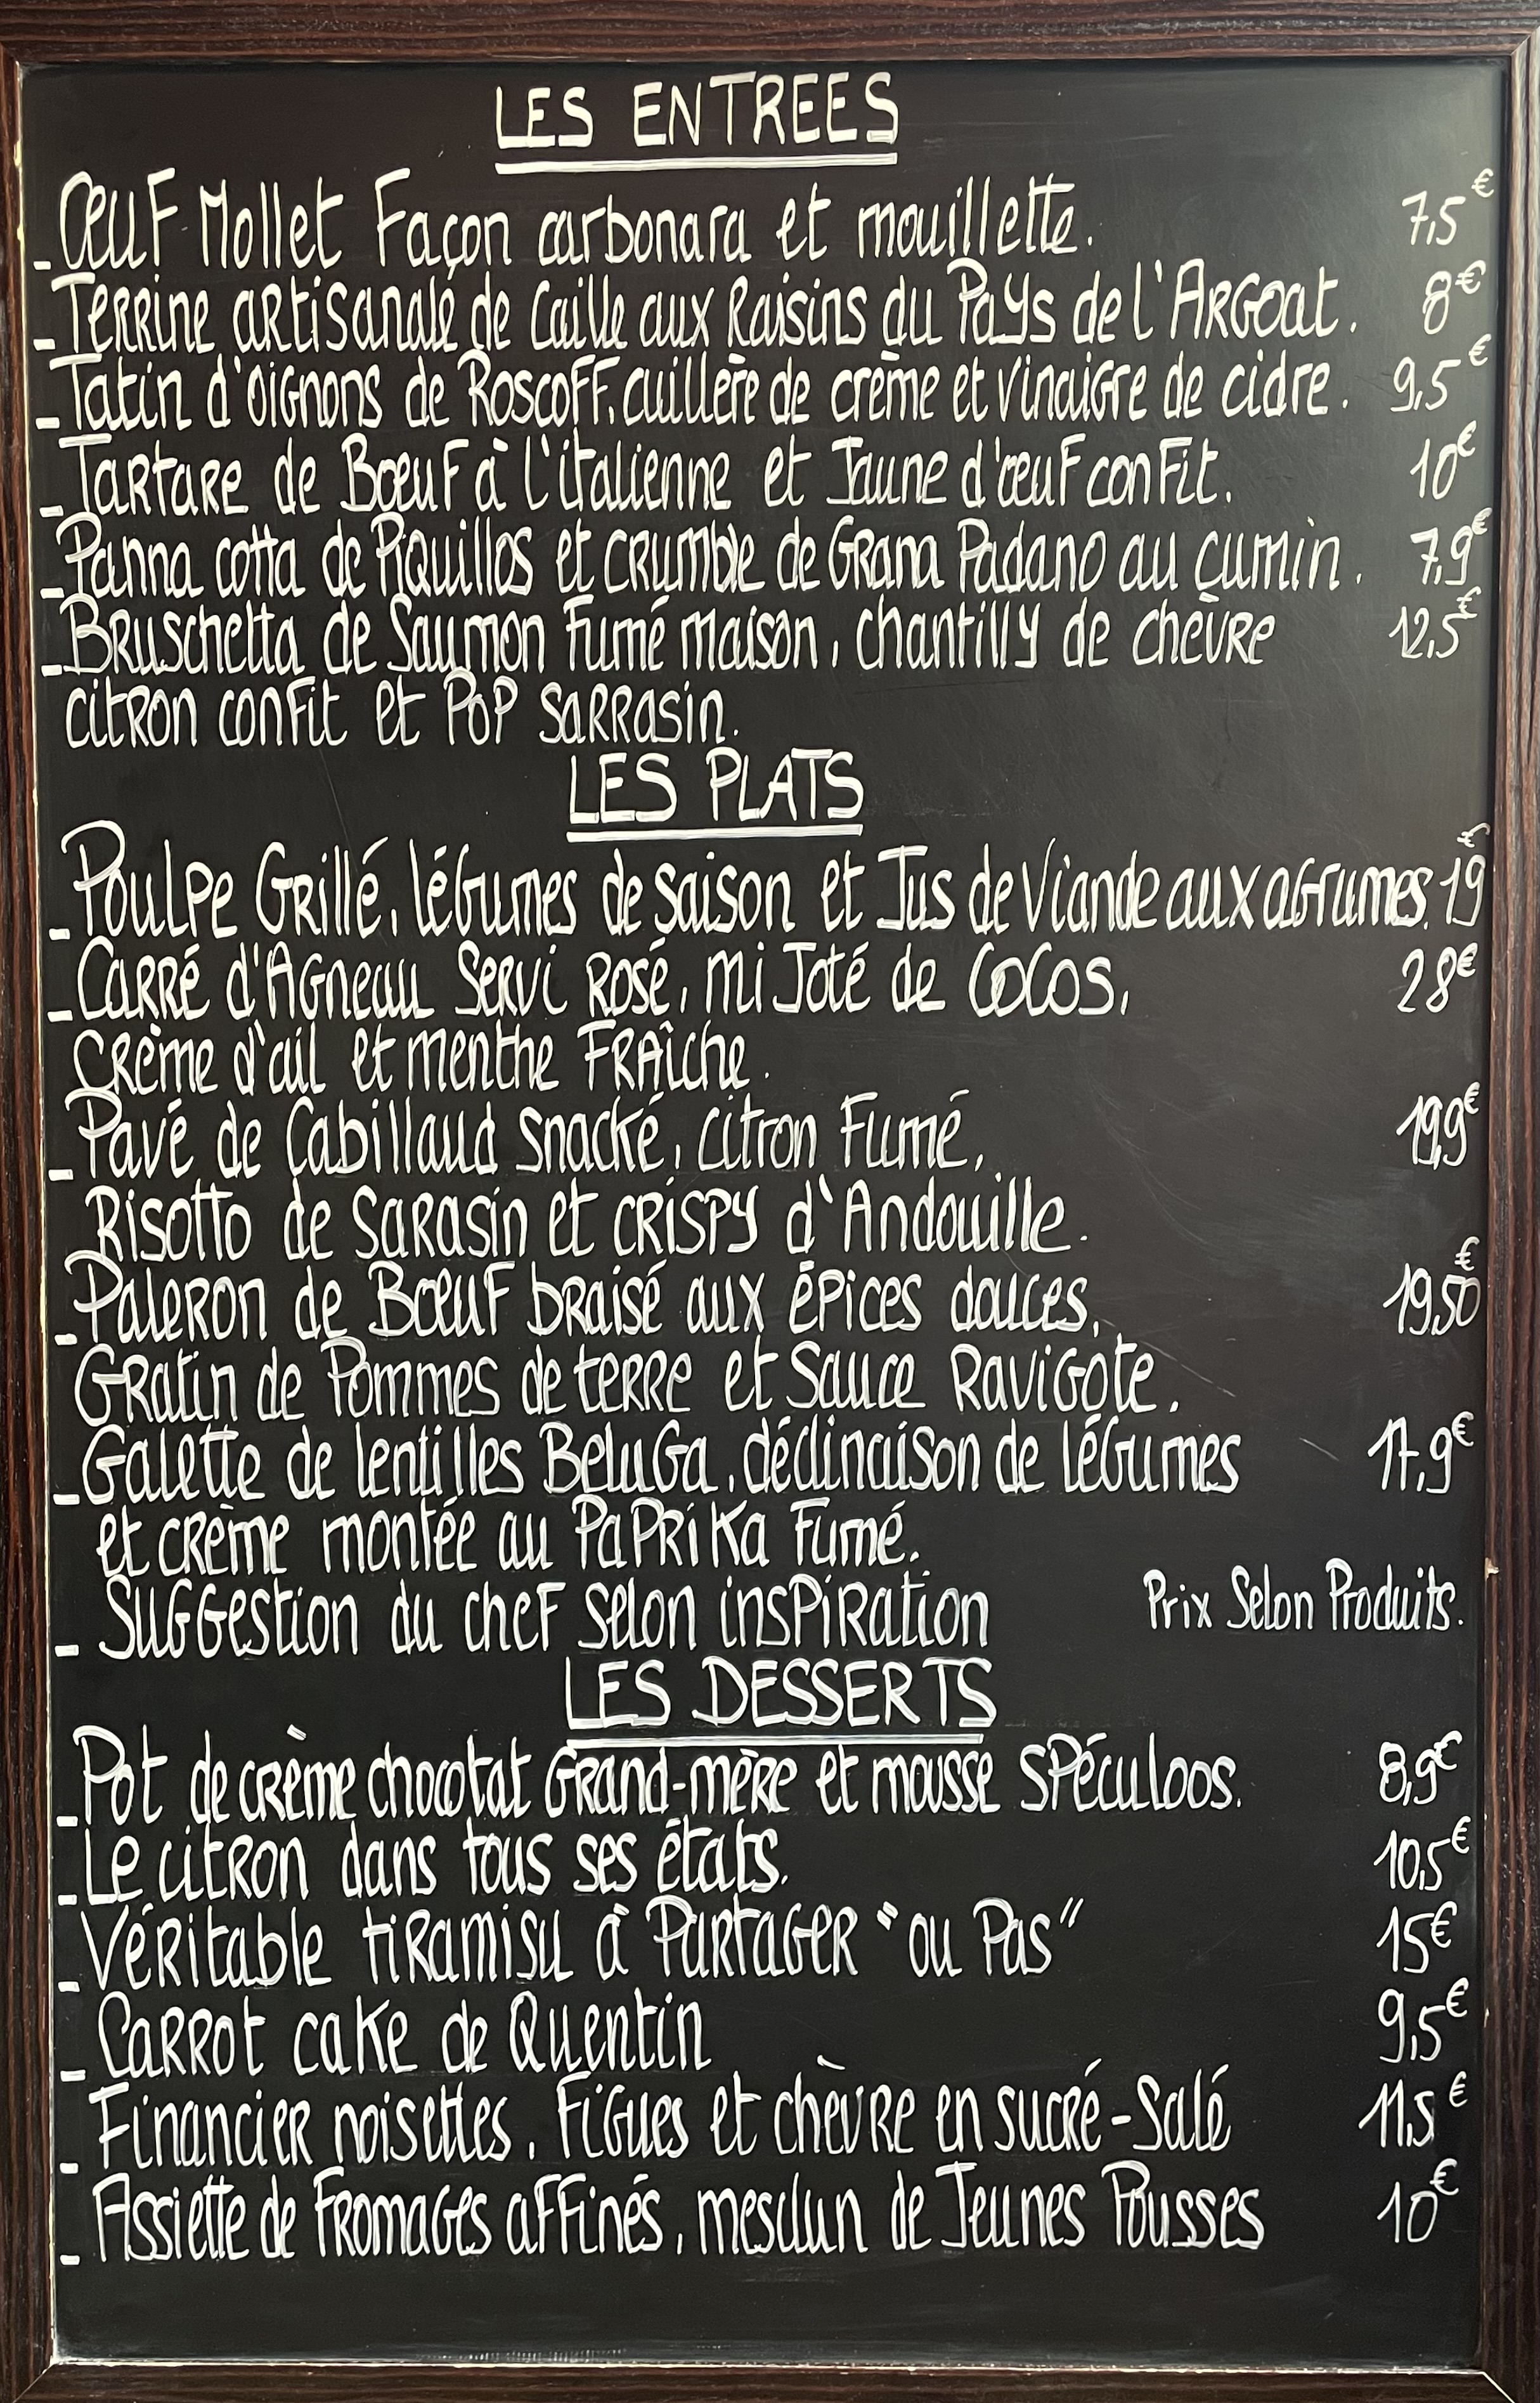 LES ENTREES
- Œuf Mollet Façon carbonara et mouillette. 7,5€
- Terrine artisanale de Caille aux Raisins du Pays de l'Argoat. 8€
- Tatin d'oignons de Roscoff, cuillère de crème et vinaigre de cidre. 9,5€
- Tartare de Bœuf à l'italienne et Jaune d'œuf confit. 10€
- Panna cotta de Piquillos et crumble de Grana Padano au cumin. 7,9€
- Bruschetta de Saumon Fumé maison, chantilly de chèvre 12,5€
citron confit et Pop Sarrasin.
LES PLATS
- Poulpe Grillé, légumes de saison et Jus de Viande aux agrumes. 19€
- Carré d'Agneau Servi Rosé, miJoté de COCOS, 28€
Crème d'ail et menthe Fraîche.
- Pavé de Cabillaud snacké, citron Fumé, 19,9€
Risotto de Sarasin et crispy d'Andouille.
- Paleron de Bœuf braisé aux épices douces, 19,50€
Gratin de Pommes de terre et Sauce Ravigote.
- Galette de lentilles Beluga, déclinaison de légumes 17,9€
et crème montée au Paprika Fumé.
- Suggestion du chef selon inspiration Prix Selon Produits.
LES DESSERTS
- Pot de crème chocolat Grand-mère et mousse Spéculoos. 8,9€
- Le citron dans tous ses états. 10,5€
- Véritable tiramisu à Partager "ou Pas" 15€
- Carrot cake de Quentin 9,5€
- Financier noisettes, Figues et chèvre en sucré-Salé 11,5€
- Assiette de Fromages affinés, mesclun de Jeunes Pousses 10€